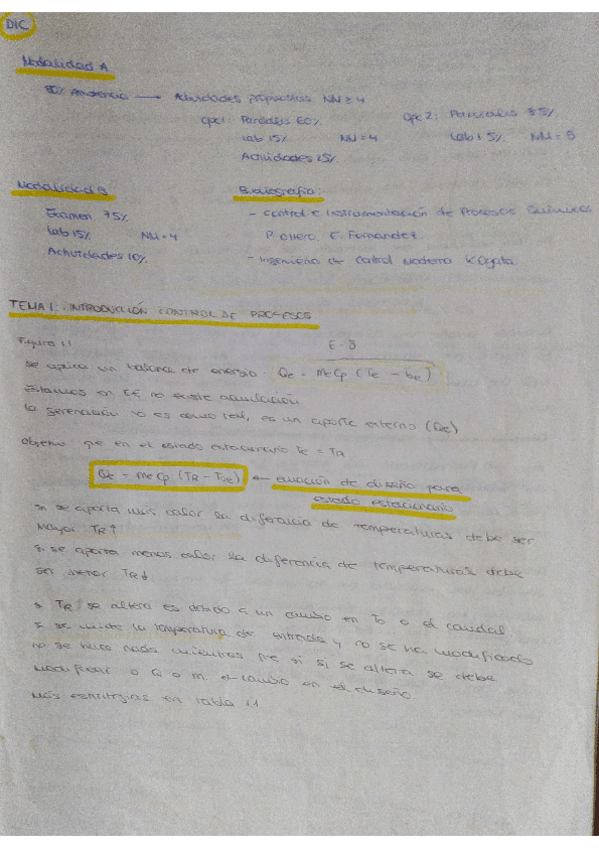 DIC
Modalidad A
80% Asistencia → Actividades propuestas NM ≥ 4
opc1: Parciales 60%. opc 2: Parciales 85%
Lab 15% NM = 4 Lab 15% NM = 5
Actividades 25%.
Modalidad B Bibliografía:
Examen 75% - Control e Instrumentación de Procesos Químicos
Lab 15% NM = 4 P. Ollero, E. Fernández.
Actividades 10%. - Ingeniería de Control Moderna K. Ogata.
TEMA 1: INTRODUCCIÓN CONTROL DE PROCESOS
Figura 1.1 E - S
se aplica un balance de energía:
Estamos en EE no existe acumulación
la generación no es como tal, es un aporte externo (Qe)
Objetivo que en el estado estacionario Te = TR
← ecuación de diseño para
estado estacionario
si se aporta más calor la diferencia de temperaturas debe ser
mayor TR↑
si se aporta menos calor la diferencia de temperaturas debe
ser menor TR↓
si TR se altera es debido a un cambio en To o el caudal
si se mide la temperatura de entrada y no se ha modificado
no se hace nada mientras que si si se altera se debe
modificar o Q o m. el cambio en el diseño
Más estrategias en tabla 1.1